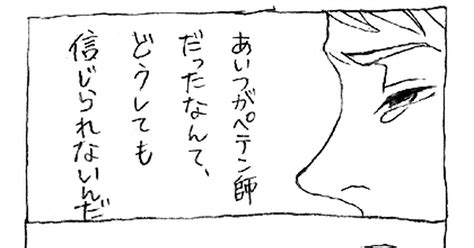 あいつがペテン師
だったなんて、
どうしても
信じられないんだ